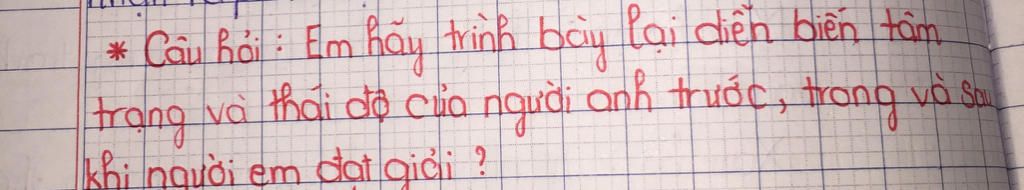 * Câu hỏi : Em hãy trình bày lại diễn biến tâm
trạng và thái độ của người anh trước, trong và sau
khi người em đạt giải ?